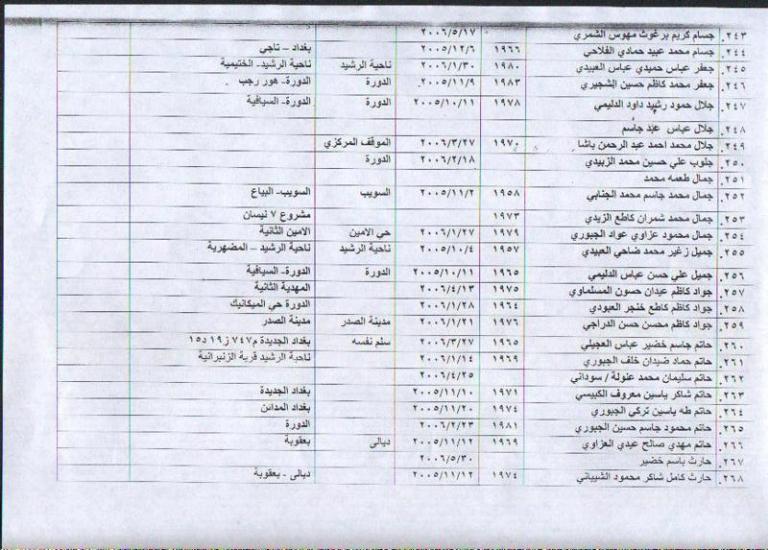 ٢٤٣. جسام كريم برغوث مهوس الشمري ٢٠٠٦/٥/١٧
٢٤٤. جسام محمد عبيد حمادي الفلاحي ١٩٦٦ ٢٠٠٥/١٢/٦ بغداد – تاجي
٢٤٥. جعفر عباس حميدي عباس العبيدي ١٩٨٠ ٢٠٠٦/١/٣٠ ناحية الرشيد ناحية الرشيد- الختيمية
٢٤٦. جعفر محمد كاظم حسين الشجيري ١٩٨٣ ٢٠٠٥/١١/٩ الدورة الدورة- هور رجب
٢٤٧. جلال حمود رشيد داود الدليمي ١٩٧٨ ٢٠٠٥/١٠/١١ الدورة الدورة- السيافية
٢٤٨. جلال عباس عبد جاسم
٢٤٩. جلال محمد احمد عبد الرحمن باشا ١٩٧٠ ٢٠٠٦/٣/٢٧ الموقف المركزي
٢٥٠. جلوب علي حسين محمد الزبيدي ٢٠٠٦/٢/١٨ الدورة
٢٥١. جمال طعمه محمد
٢٥٢. جمال محمد جاسم محمد الجنابي ١٩٥٨ ٢٠٠٥/١١/٢ السويب السويب- البياع
٢٥٣. جمال محمد شمران كاطع الزيدي ١٩٧٣ مشروع ٧ نيسان
٢٥٤. جمال محمود عزاوي عواد الجبوري ١٩٧٩ ٢٠٠٦/١/٢٧ حي الامين الامين الثانية
٢٥٥. جميل زغير محمد ضاحي العبيدي ١٩٥٧ ٢٠٠٥/١٠/٤ ناحية الرشيد ناحية الرشيد – المضهرية
٢٥٦. جميل علي حسن عباس الدليمي ١٩٦٥ ٢٠٠٥/١٠/١١ الدورة الدورة- السيافية
٢٥٧. جواد كاظم عيدان حسون المسلماوي ١٩٧٥ ٢٠٠٦/٤/١٣ المهدية الثانية
٢٥٨. جواد كاظم كاطع خنجر العبودي ١٩٦٤ ٢٠٠٦/١/٢٨ الدورة حي الميكانيك
٢٥٩. جواد كاظم محسن حسن الدراجي ١٩٧٦ ٢٠٠٦/١/٢١ مدينة الصدر مدينة الصدر
٢٦٠. حاتم جاسم خضير عباس العجيلي ١٩٦٥ ٢٠٠٦/٣/٢٧ سلم نفسه بغداد الجديدة م٧٤٧ ز١٩ د١٥
٢٦١. حاتم حماد ضيدان خلف الجبوري ١٩٦٩ ٢٠٠٦/١/١٤ ناحية الرشيد قرية الزنبرانية
٢٦٢. حاتم سليمان محمد عنولة / سوداني ٢٠٠٦/٤/٢٥
٢٦٣. حاتم شاكر ياسين معروف الكبيسي ١٩٧١ ٢٠٠٥/١١/١٠ بغداد الجديدة
٢٦٤. حاتم طه ياسين تركي الجبوري ١٩٧٤ ٢٠٠٥/١١/٢٠ بغداد المدائن
٢٦٥. حاتم محمود جاسم حسين الجبوري ١٩٨١ ٢٠٠٦/٢/٢٣ الدورة
٢٦٦. حاتم مهدي صالح عبدي العزاوي ١٩٦٩ ٢٠٠٥/١١/١٢ ديالى بعقوبة
٢٦٧. حارث باسم خضير ٢٠٠٦/٥/٣٠
٢٦٨. حارث كامل شاكر محمود الشيباني ١٩٧٤ ٢٠٠٥/١١/١٢ ديالى - بعقوبة